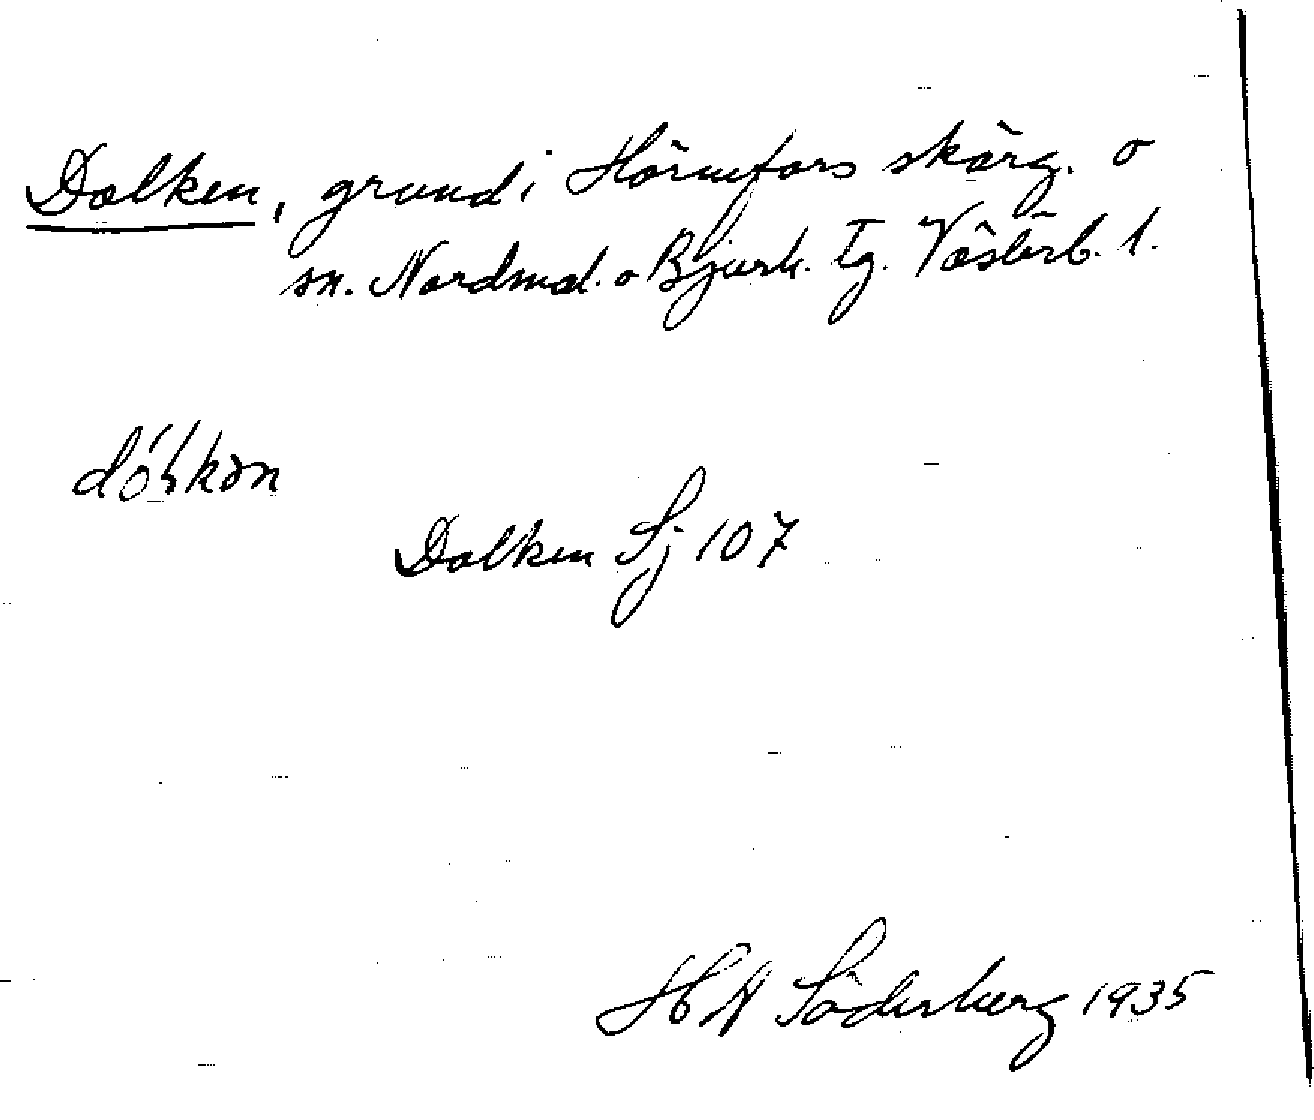 Dalken, grund i Hörnefors skärg. o
sn. Nordmal. o Bjurh. tg. Västerb. l.
Dalken Sj 107
H A Söderberg 1935